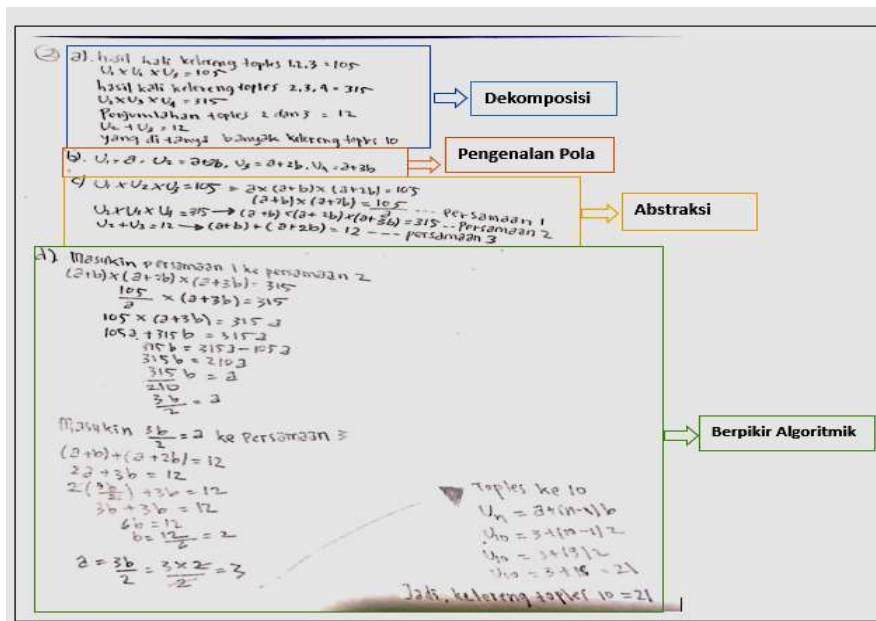 ② a). hasil kali kelereng toples 1,2,3 = 105
U₁ × U₂ × U₃ = 105
hasil kali kelereng toples 2,3,4 = 315
U₂ × U₃ × U₄ = 315
Penjumlahan toples 2 dan 3 = 12
U₂ + U₃ = 12
yang di tanya banyak kelereng toples 10
Dekomposisi
b). U₁ = a, U₂ = a+b, U₃ = a+2b, U₄ = a+3b
Pengenalan Pola
c) U₁ × U₂ × U₃ = 105 = a × (a+b) × (a+2b) = 105
(a+b) × (a+2b) = 105/a ... persamaan 1
U₂ × U₃ × U₄ = 315 → (a+b) × (a+2b) × (a+3b) = 315 ... Persamaan 2
U₂ + U₃ = 12 → (a+b) + (a+2b) = 12 ---- persamaan 3
Abstraksi
d) Masukin persamaan 1 ke persamaan 2
(a+b) × (a+2b) × (a+3b) = 315
105/a × (a+3b) = 315
105 × (a+3b) = 315 a
105a + 315b = 315a
315b = 315a - 105a
315b = 210a
315/210 b = a
3b/2 = a
Masukin 3b/2 = a ke persamaan 3
(a+b) + (a+2b) = 12
2a + 3b = 12
2(3b/2) + 3b = 12
3b + 3b = 12
6b = 12
b = 12/6 = 2
a = 3b/2 = 3×2/2 = 3
Berpikir Algoritmik
Toples ke 10
Uₙ = a+(n-1)b
U₁₀ = 3+(10-1)2
U₁₀ = 3+(9)2
U₁₀ = 3+18 = 21
Jadi, kelereng toples 10 = 21